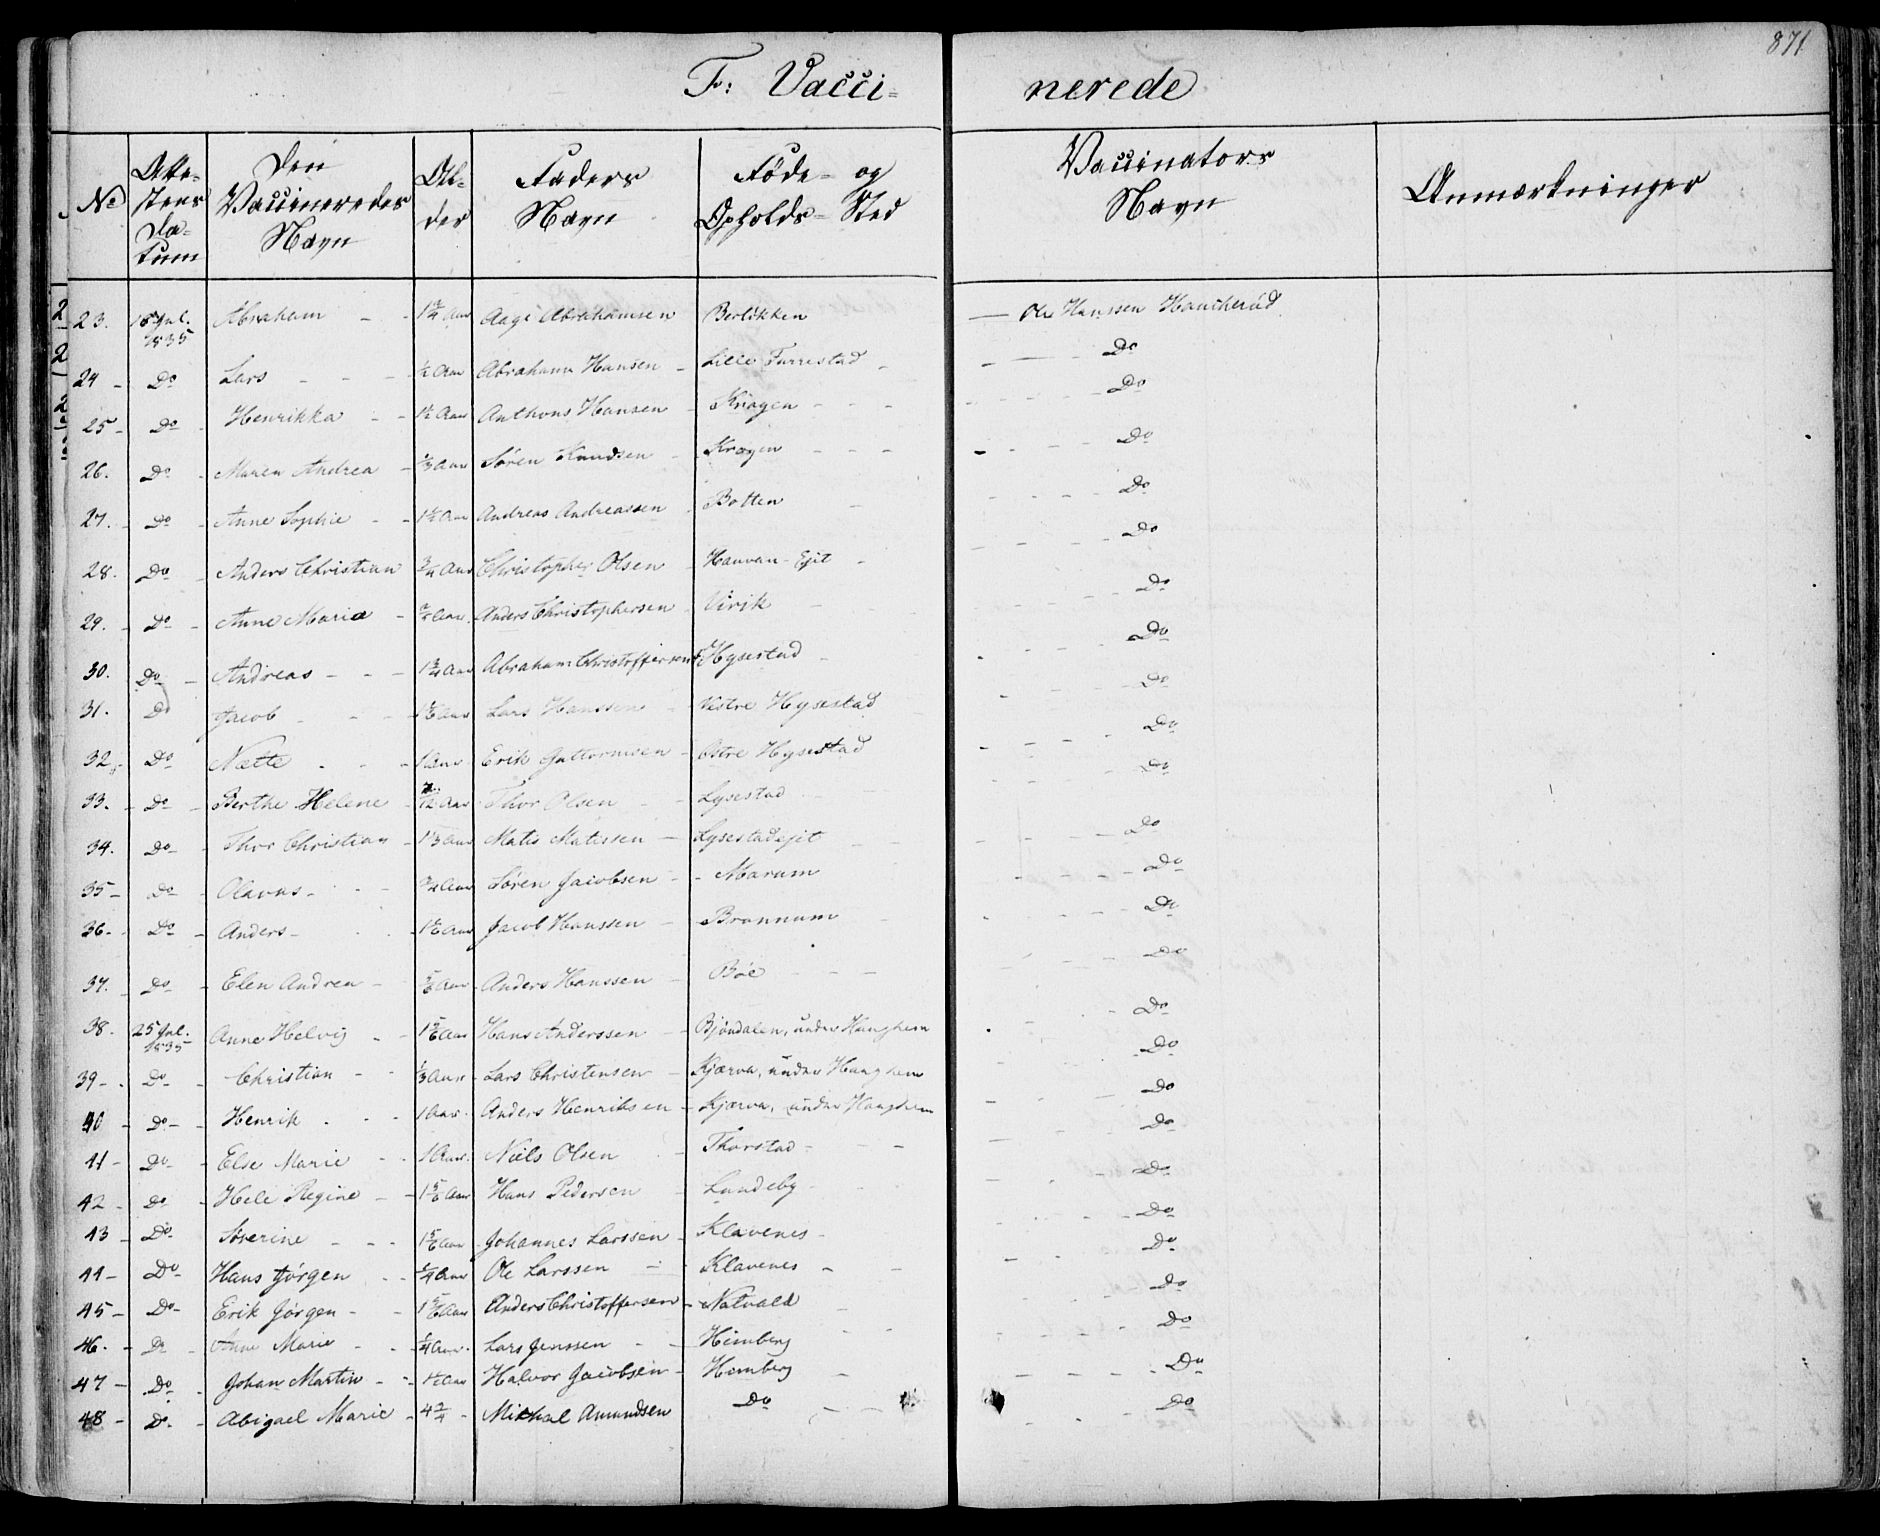 871
F: Vacci= nerede
No | Atte-stens Datum | Den Vaccineredes Navn | Alder | Faders Navn | Føde- og Opholds-Sted | Vaccinators Navn | Anmærkninger
23. 18 Jul. 1835 Abraham Aage Abrahamsen Berløkken Ole Hanssen
24 Do Lars ½ Aar Abraham Hansen Lille Furrestad Do
25 Do Henrikka 1½ Aar Anthons Hansen Kragen Do
26. Do Maren Andrea Aar Søren Knudsen Kragen Do
27. Do Anne Sophie 1½ Aar Andreas Andreassen Botten Do
28. Do Anders Christian ¾ Aar Christopher Olsen Hauvan-Ejit Do
29. Do Anne Maria Aar Anders Christophersen Virik Do
30. Do Andreas 1¾ Aar Abraham Christoffersen Hysestad Do
31. Do Jacob Aar Lars Hanssen Vestre Hysestad Do
32. Do Nætte 1 Aar Erik Guttormsen Østre Hysestad Do
33. Do Berthe Helene 7/12 Aar Thor Olsen Lysestad Do
34. Do Thor Christian 1⅓ Aar Matis Matissen Lysestadejit Do
35 Do Olavus ¾ Aar Søren Jacobsen Marum Do
36. Do Anders Aar Jacob Hanssen Brunnum Do
37. Do Elen Andrea ⅚ Aar Anders Hanssen Bøe Do
38. 25 Jul. 1835 Anne Helvig 1⅚ Aar Hans Anderssen Bjøndalen, under Haughem Do
39 Do Christian ⅓ Aar Lars Christensen Kjærva, under Haughem Do
40 Do Henrik 1 Aar. Anders Henriksen Kjærva, under Haughem Do
41 Do Else Marie 1 Aar. Niels Olsen Thorstad Do
42 Do Hele Regine 1⅚ Aar Hans Pedersen Lundeby Do
43 Do Søverine 1⅚ Aar Johannes Larssen Klavenes Do
44 Do Hans Jørgen ¼ Aar Ole Larssen Klavenes Do
45 Do Erik Jørgen 1⅚ Aar Anders Christoffersen Natvald Do
46. Do Anne Marie ¼ Aar. Lars Jenssen Himberg Do
47 Do Johan Martin Aar Halvor Jacobsen Himberg Do
48 Do Abigael Marie 4 2/4 Michal Amundsen Do Do